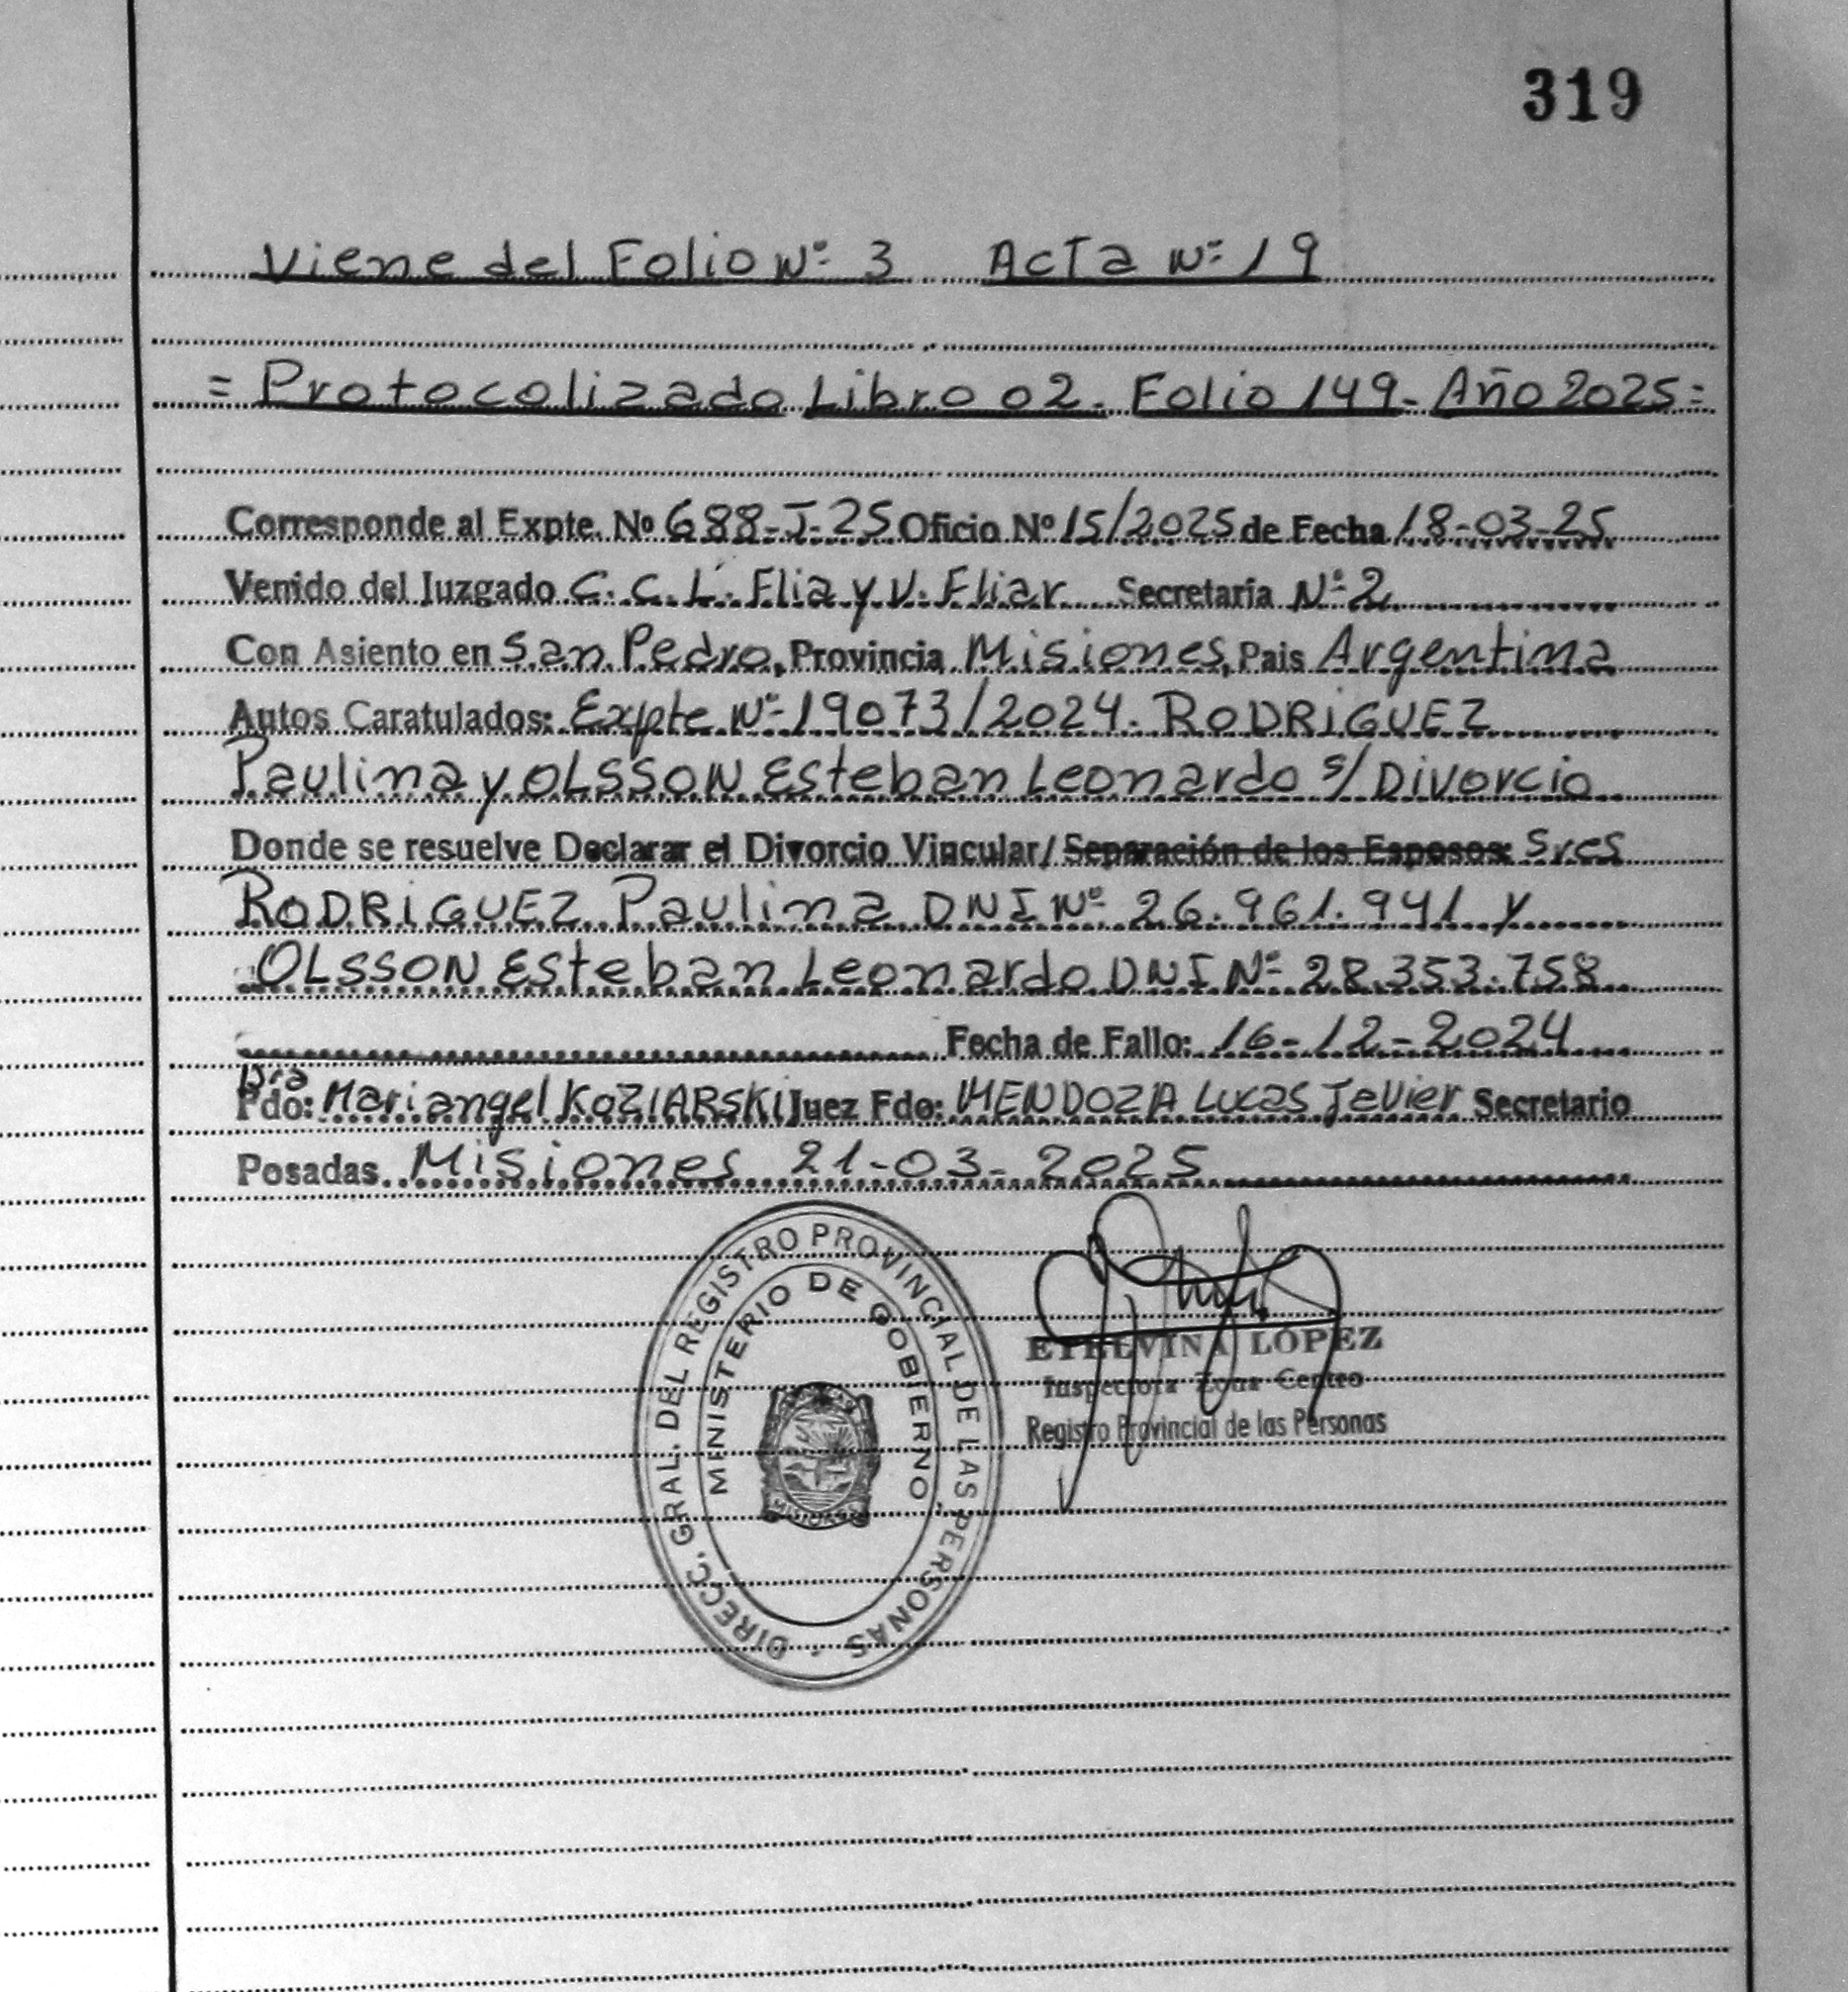 319
Viene del Folio Nº 3 Acta Nº 19
= Protocolizado Libro 02. Folio 149- Año 2025=
Corresponde al Expte. Nº 688-J-25 Oficio Nº 15/2025 de Fecha 18-03-25
Venido del Juzgado C. C. L. Flia y V. Fliar Secretaria Nº 2
Con Asiento en San Pedro, Provincia Misiones, Pais Argentina
Autos Caratulados: Expte Nº 19073/2024. RODRIGUEZ
Paulina y OLSSON Esteban Leonardo s/ Divorcio
Donde se resuelve Declarar el Divorcio Vincular/ Separación de los Esposos: Sres
RODRIGUEZ Paulina DNI Nº 26.961.941 y
OLSSON Esteban Leonardo DNI Nº 28.353.758
Fecha de Fallo: 16-12-2024
Dra
Fdo: Mariangel KOZIARSKI Juez Fdo: MENDOZA Lucas Javier Secretario
Posadas. Misiones 21-03-2025
DIRECC. GRAL. DEL REGISTRO PROVINCIAL DE LAS PERSONAS
MINISTERIO DE GOBIERNO
MISIONES
ETELVINA LÓPEZ
Inspectora Zona Centro
Registro Provincial de las Personas